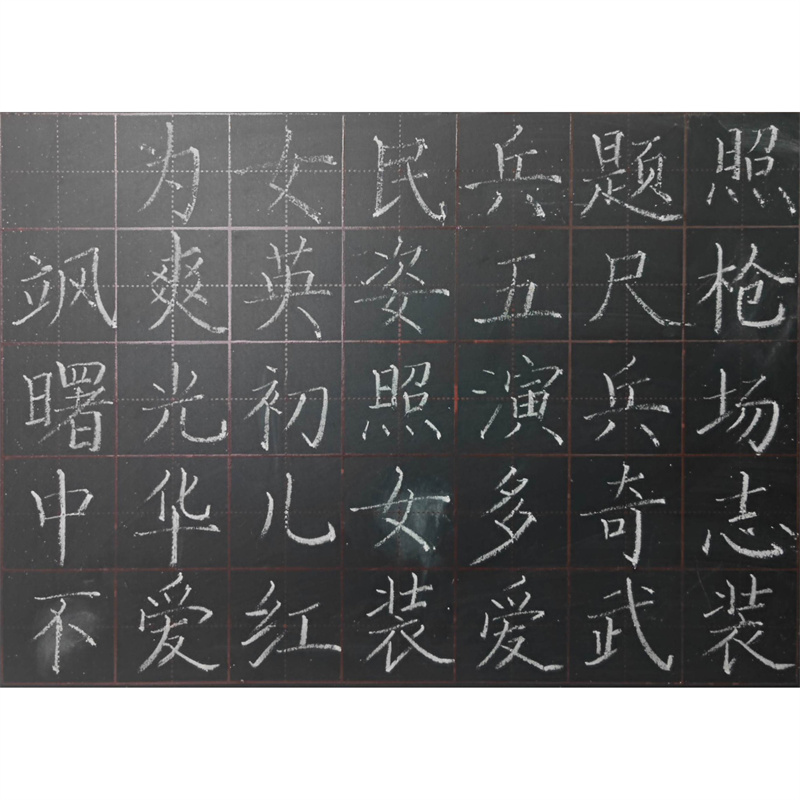 为女民兵题照
飒爽英姿五尺枪
曙光初照演兵场
中华儿女多奇志
不爱红装爱武装